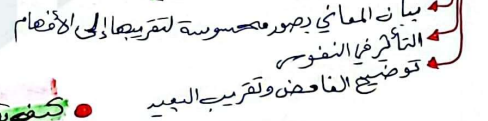 بيان المعاني بصور محسوسة لتقريبها إلى الأفهام
التأثير في النفوس
توضيح الغامض وتقريب البعيد